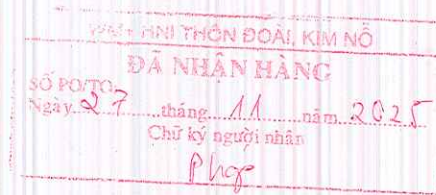 HNI THÔN ĐOÀI, KIM NỖ
ĐÃ NHẬN HÀNG
SỐ PO/TO:
Ngày 27 tháng 11 năm 2025
Chữ ký người nhân